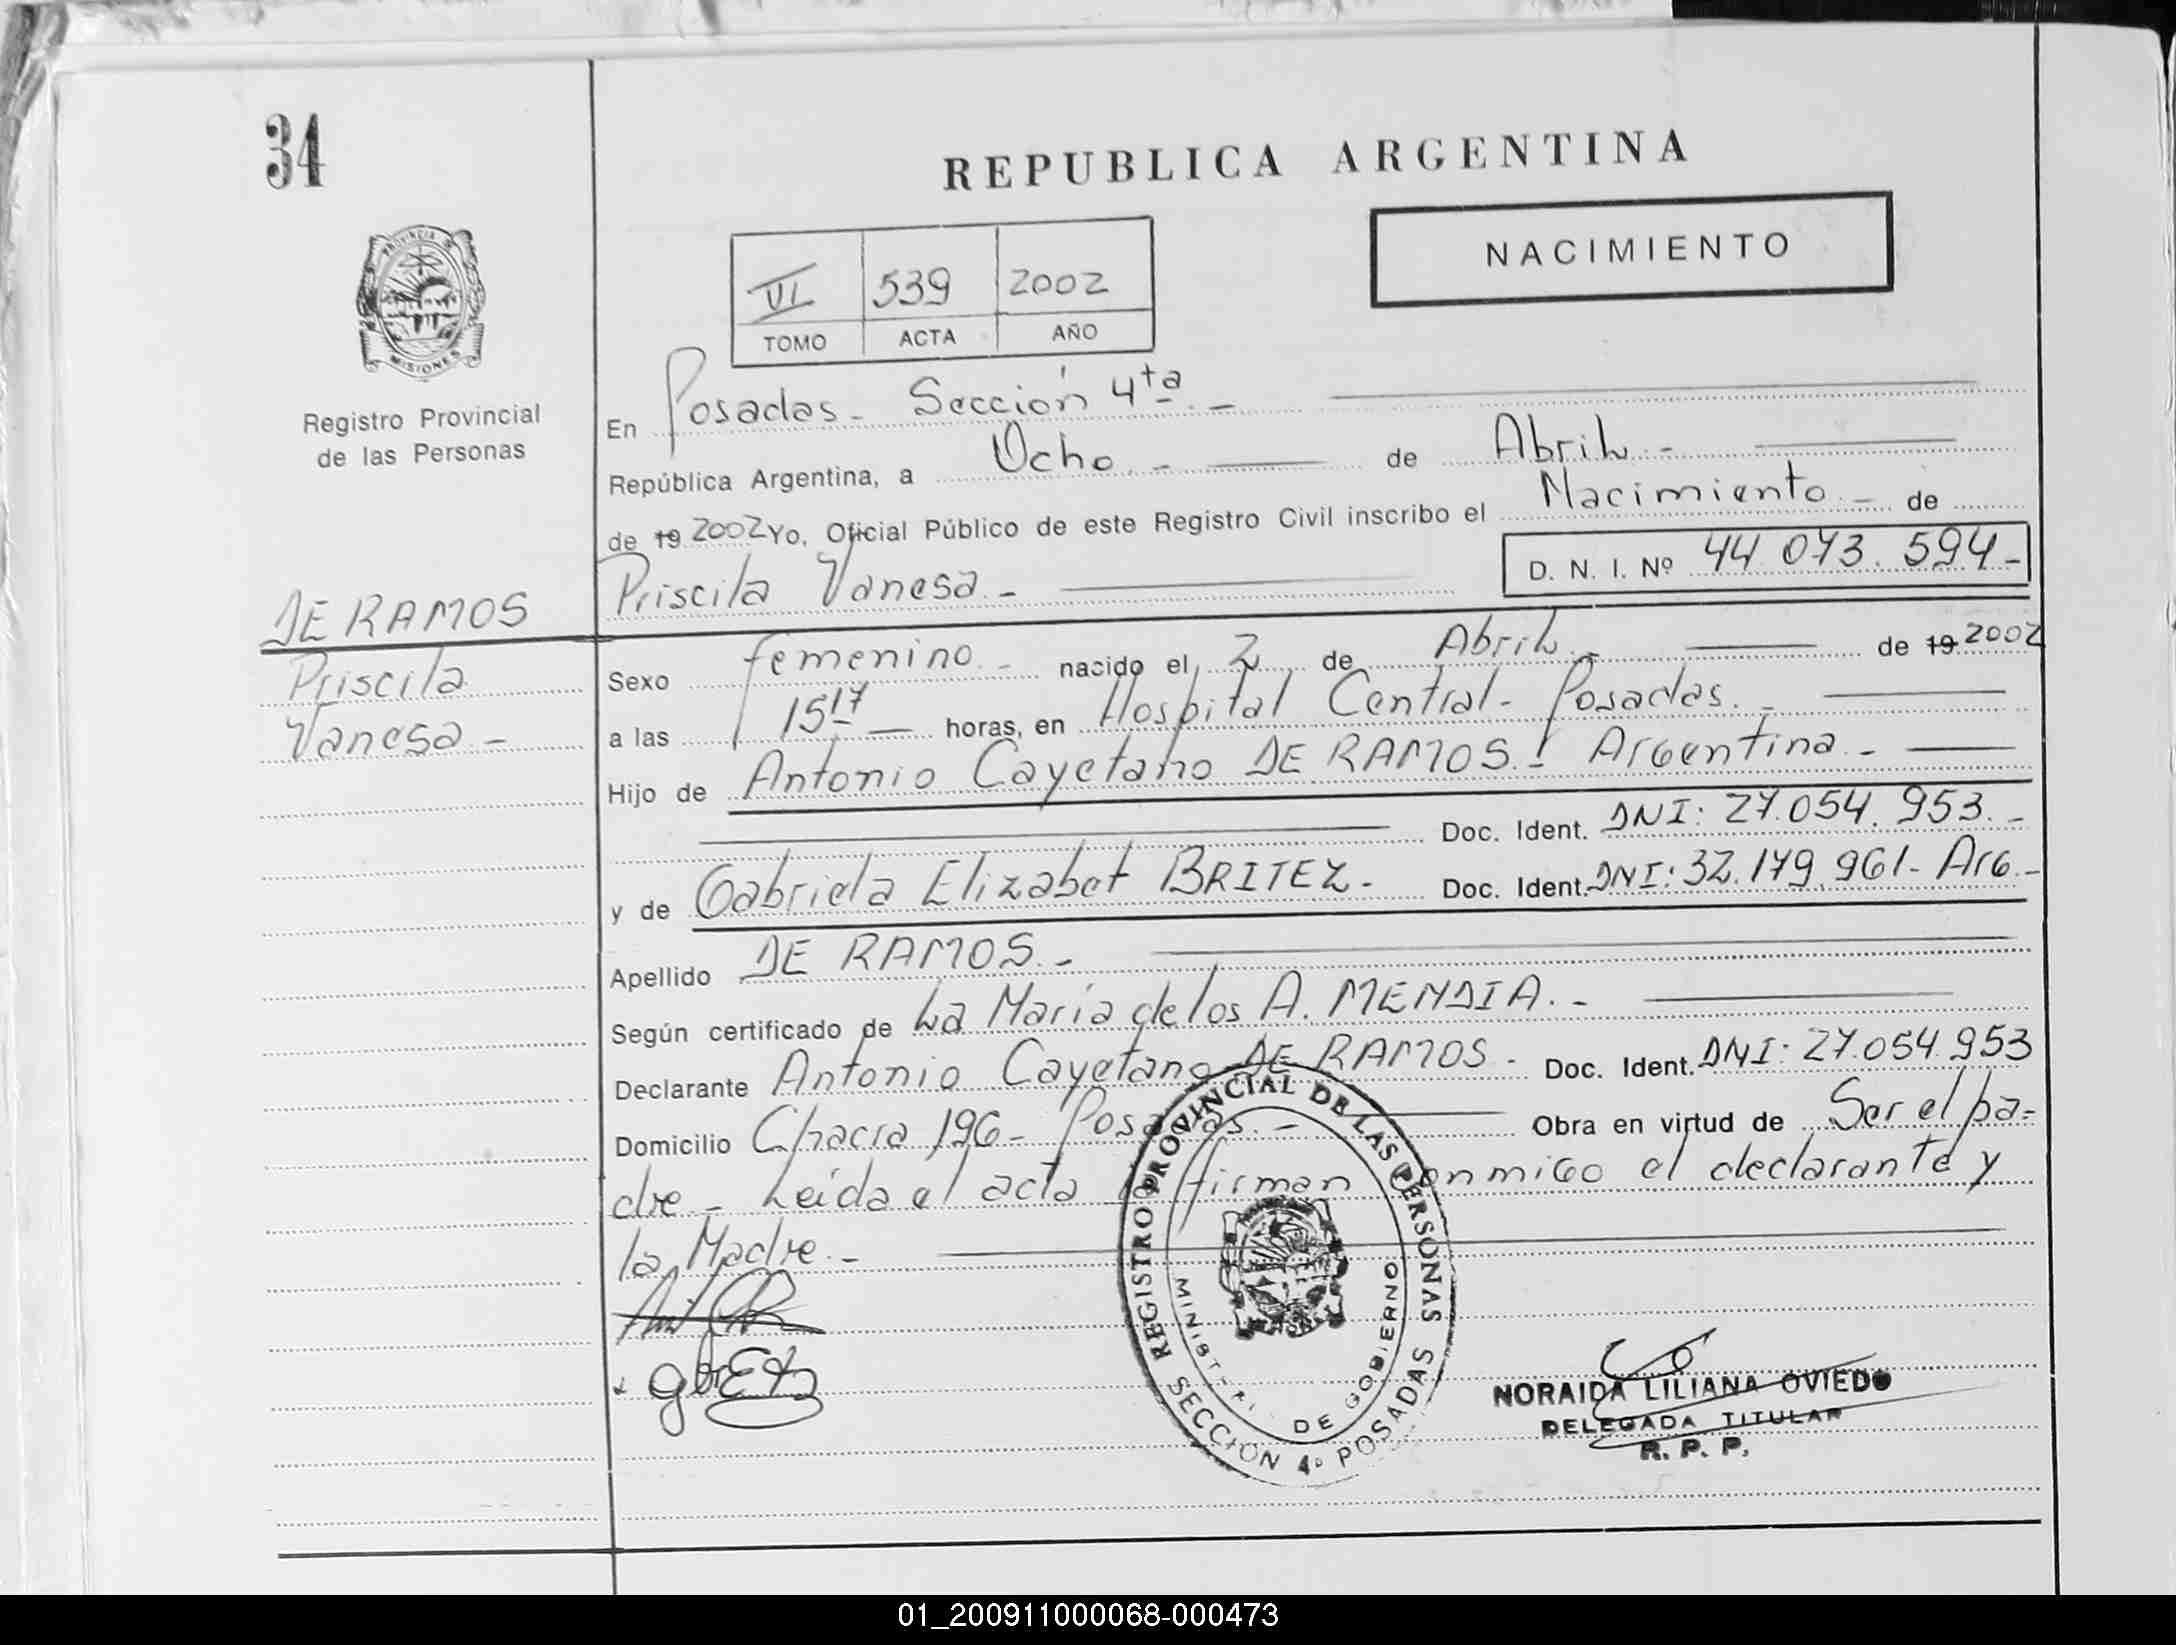 34
REPUBLICA ARGENTINA
NACIMIENTO
VI 539 2002
TOMO ACTA AÑO
PROVINCIA DE
MISIONES
Registro Provincial
de las Personas
En Posadas - Sección 4ta. -
República Argentina, a Ocho. - de Abril. -
de 19 2002 Yo, Oficial Público de este Registro Civil inscribo el Nacimiento. - de
Priscila Vanesa. - D. N. I. Nº 44.073.594 -
DE RAMOS
Priscila
Vanesa -
Sexo femenino. - nacido el 2 de Abril. - de 19 2002
a las 15 17 horas, en Hospital Central - Posadas. -
Hijo de Antonio Cayetano DE RAMOS. Argentina. -
Doc. Ident. DNI: 27.054.953. -
y de Gabriela Elizabet BRITEZ. - Doc. Ident. DNI: 32.179.961 - Arg. -
Apellido DE RAMOS. -
Según certificado de La María de los A. MENDIA. -
Declarante Antonio Cayetano DE RAMOS - Doc. Ident. DNI: 27.054.953
Domicilio Chacra 196 - Posadas. - Obra en virtud de Ser el pa=
dre - Leída el acta firman conmigo el declarante y
la Madre. -
REGISTRO PROVINCIAL DE LAS PERSONAS
MINISTERIO DE GOBIERNO
SECCION 4º POSADAS
NORAIDA LILIANA OVIEDO
DELEGADA TITULAR
R. P. P.
01_200911000068-000473